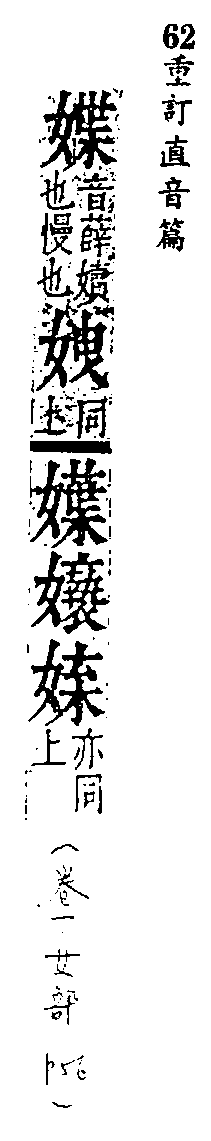 62重訂直音篇
媟音薛嬻也慢也
㛍同上
𡡗𡤓㛖亦同上
(卷一女部 p56)